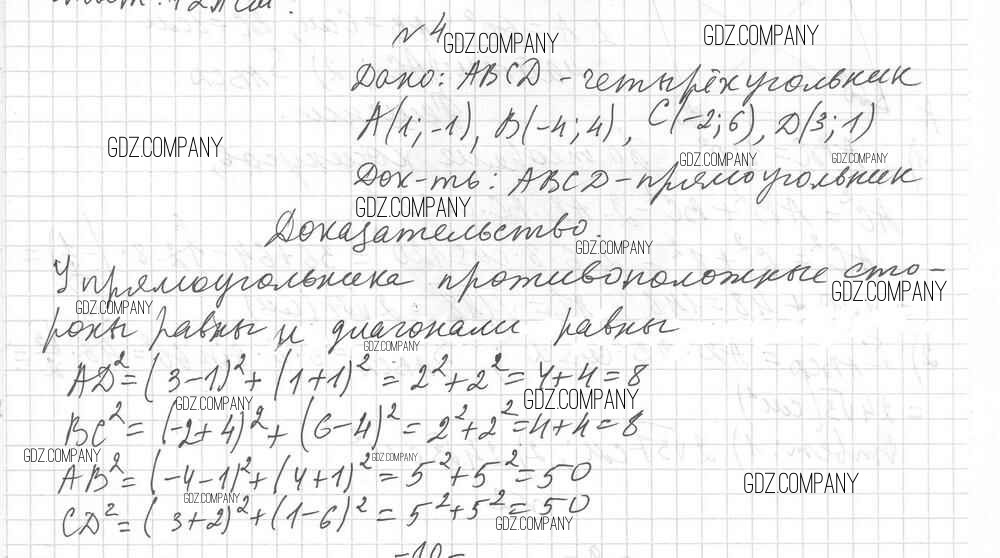 № 4
GDZ.COMPANY
GDZ.COMPANY
Дано: ABCD - четырёхугольник
A(1; -1), B(-4; 4), C(-2; 6), D(3; 1)
GDZ.COMPANY
GDZ.COMPANY
GDZ.COMPANY
Док-ть: ABCD - прямоугольник
GDZ.COMPANY
Доказательство.
GDZ.COMPANY
У прямоугольника противоположные сто-
GDZ.COMPANY
GDZ.COMPANY
роны равны и диагонали равны
GDZ.COMPANY
AD² = (3-1)² + (1+1)² = 2² + 2² = 4+4 = 8
GDZ.COMPANY
GDZ.COMPANY
BC² = (-2+4)² + (6-4)² = 2² + 2² = 4+4 = 8
GDZ.COMPANY
GDZ.COMPANY
AB² = (-4-1)² + (4+1)² = 5² + 5² = 50
GDZ.COMPANY
GDZ.COMPANY
CD² = (3+2)² + (1-6)² = 5² + 5² = 50
GDZ.COMPANY